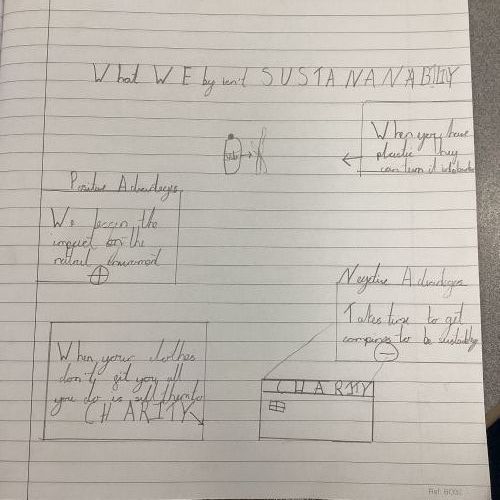 What WE by isn't SUSTANANABILITY
When you have
plastic they
can turn it into
Positive Advantages
We lessen the
impact on the
natral
Negative Advantages
Takes time to get
companes to be
When your clothes
don't fit you all
you do is sell them to
CHARITY
CHARITY